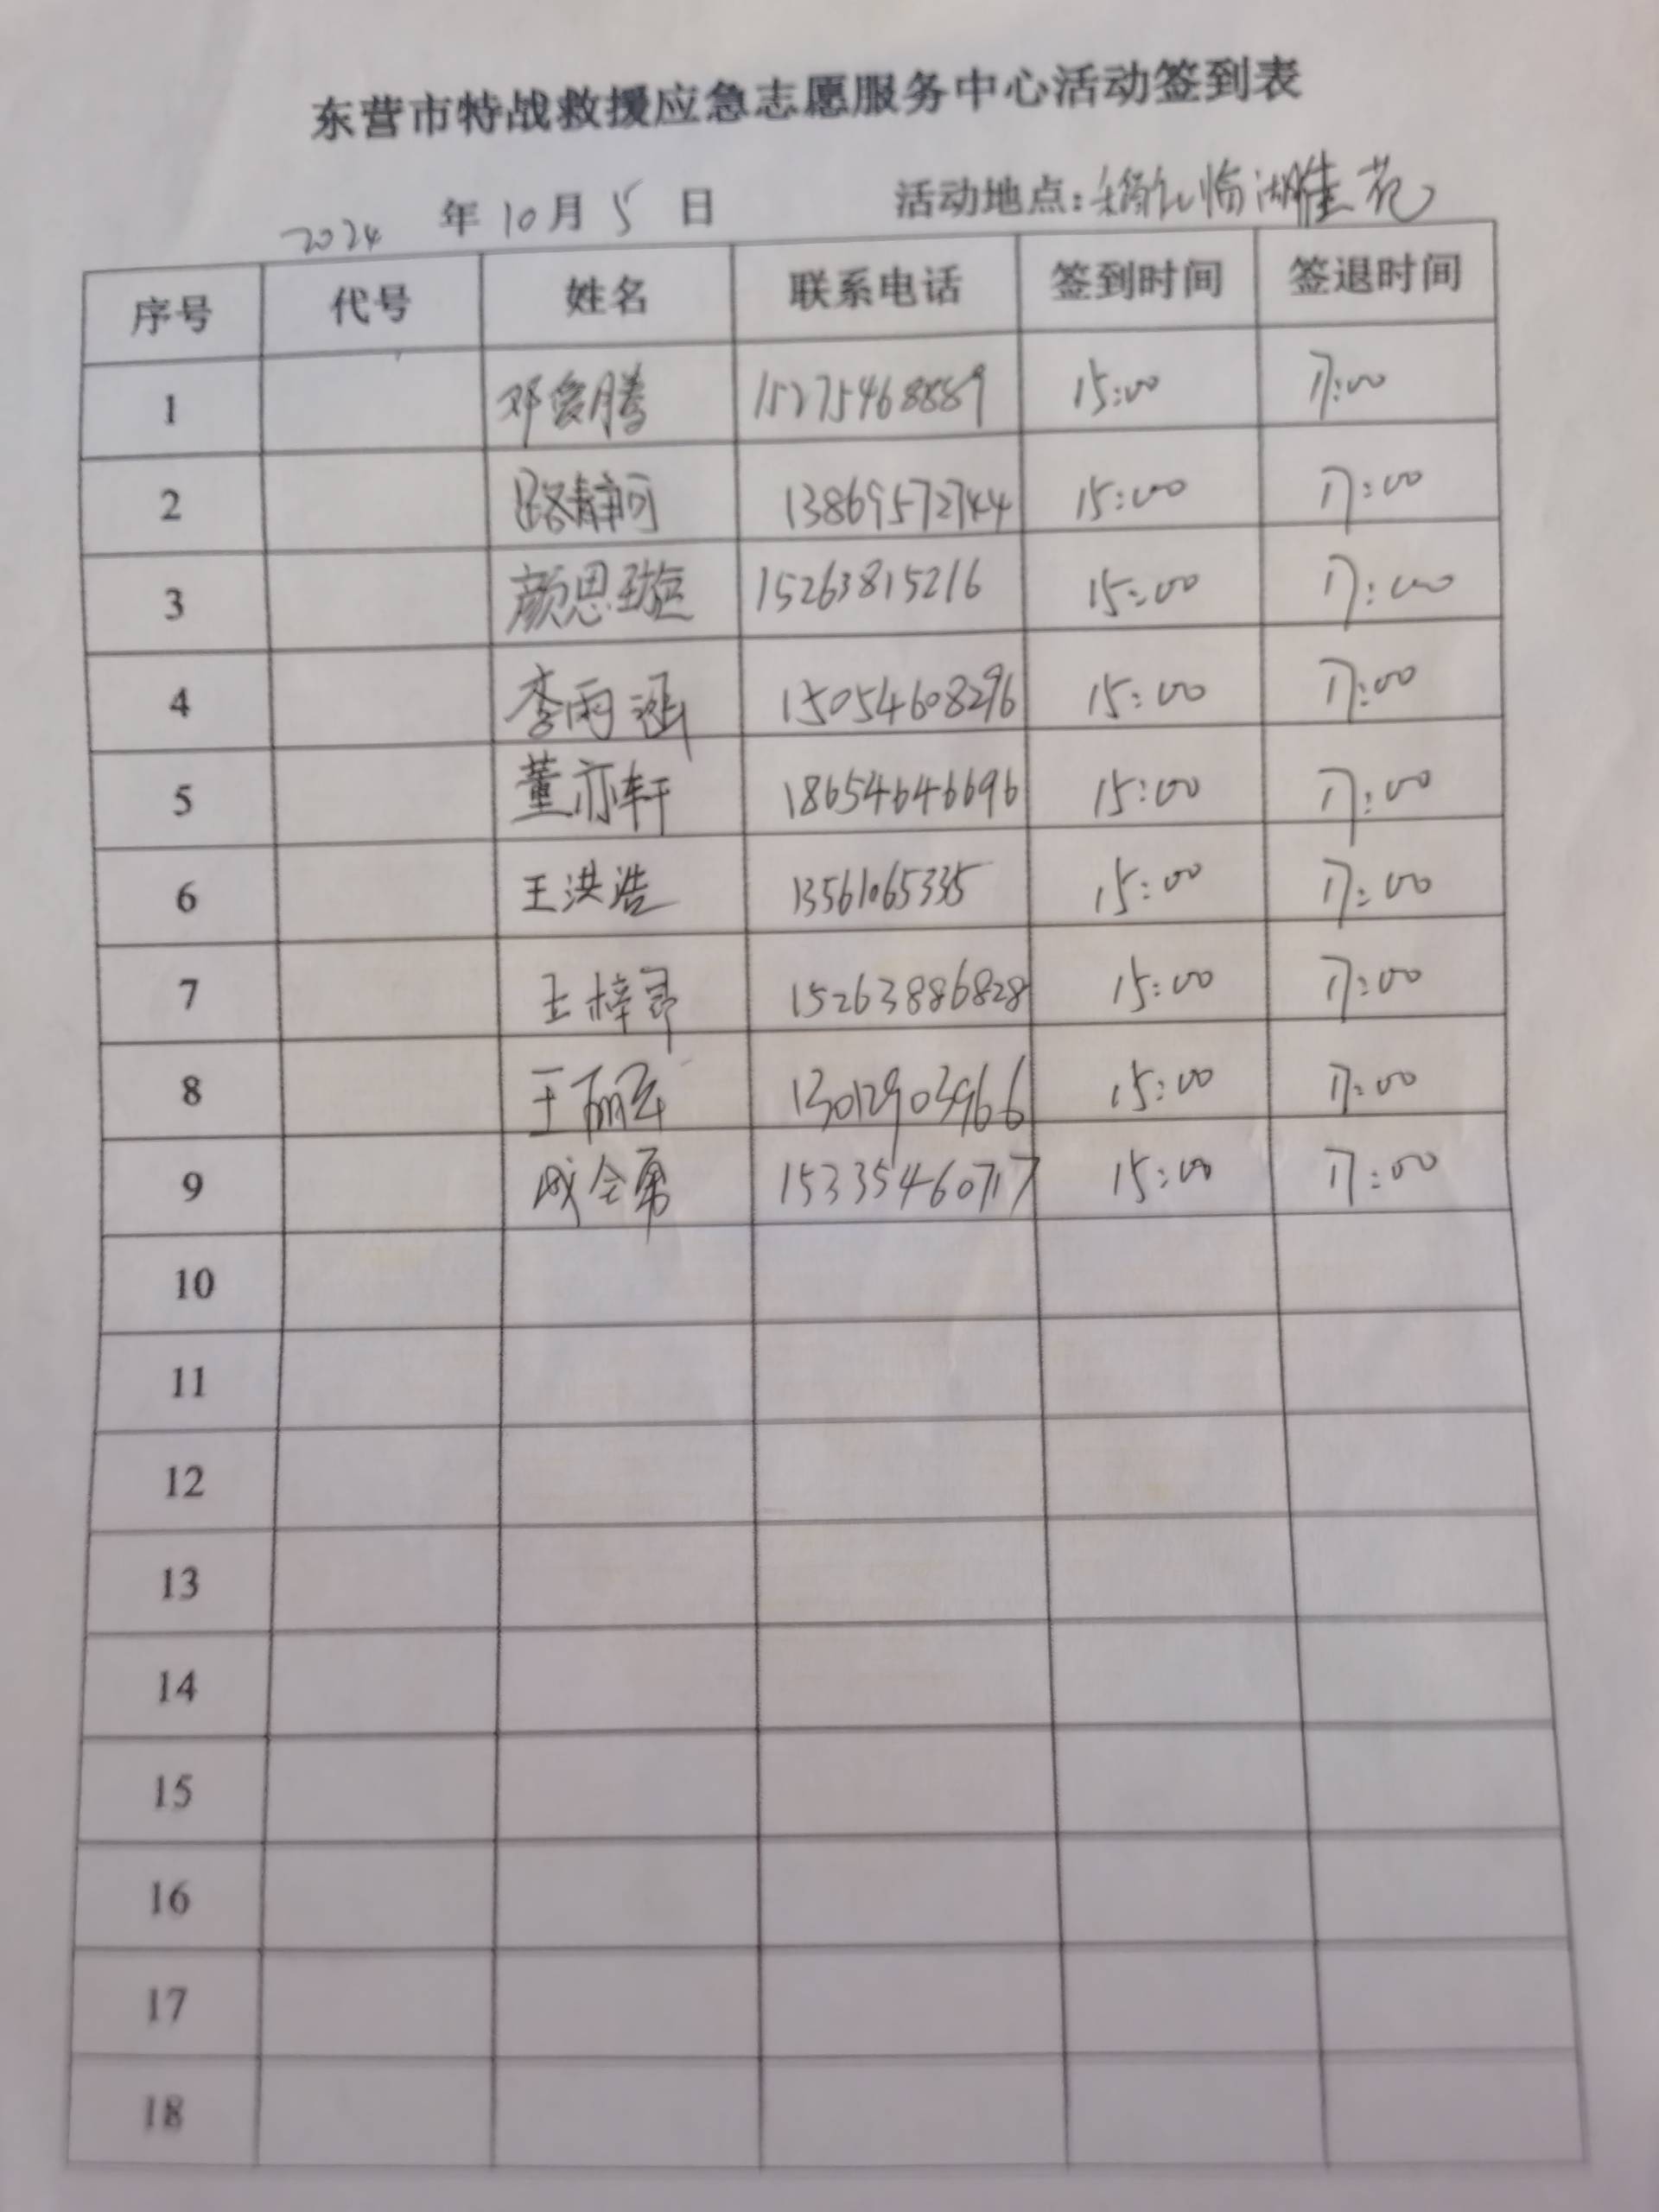 东营市特战救援应急志愿服务中心活动签到表
2024 年 10 月 5 日 活动地点: 临湖佳苑
序号 代号 姓名 联系电话 签到时间 签退时间
1 邓俊腾 15275468889 15:00 17:00
2 路静可 13869572744 15:00 17:00
3 颜思璇 15263815216 15:00 17:00
4 李雨涵 15054608296 15:00 17:00
5 董亦轩 18654646696 15:00 17:00
6 王洪浩 13561065335 15:00 17:00
7 王梓昂 15263886828 15:00 17:00
8 王丽 13012903966 15:00 17:00
9 成全勇 15335460717 15:00 17:00
10
11
12
13
14
15
16
17
18